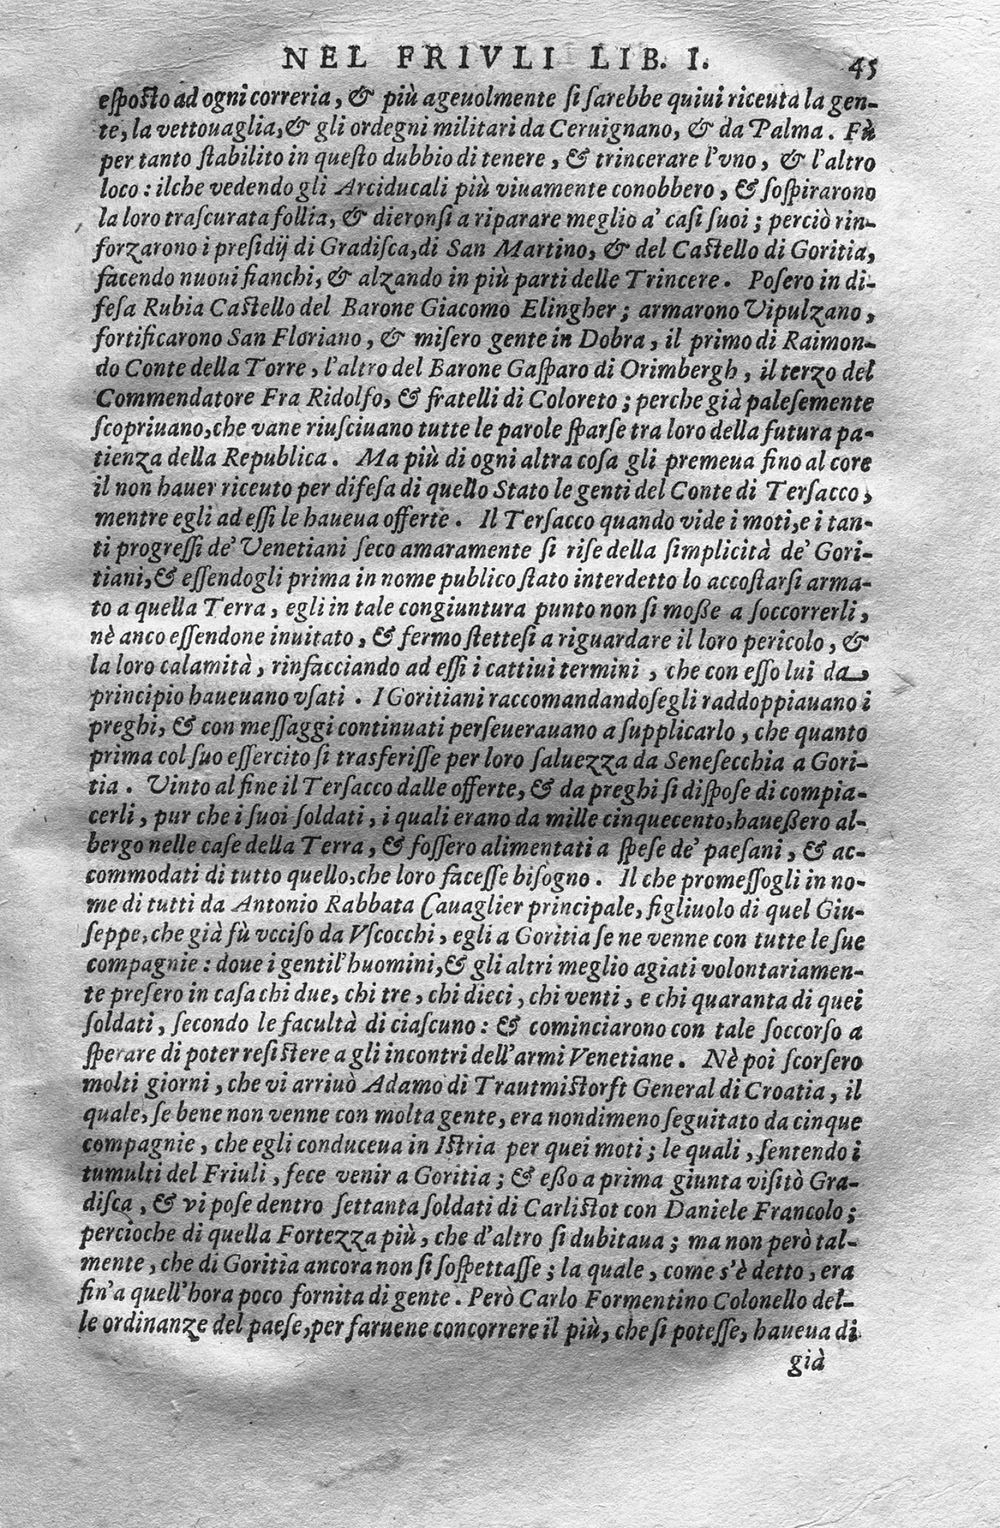 NEL FRIVLI LIB. I. 45
eſpoſto ad ogni correria, & più ageuolmente ſi ſarebbe quiui riceuta la gen-
te, la vettouaglia, & gli ordegni militari da Ceruignano, & da Palma. Fù
per tanto ſtabilito in queſto dubbio di tenere, & trincerare l'vno, & l'altro
loco: ilche vedendo gli Arciducali più viuamente conobbero, & ſoſpirarono
la loro traſcurata follia, & dieronſi a riparare meglio a' caſi ſuoi; perciò rin-
forzarono i preſidij di Gradiſca, di San Martino, & del Caſtello di Goritia,
facendo nuoui fianchi, & alzando in più parti delle Trincere. Poſero in di-
feſa Rubia Caſtello del Barone Giacomo Elingher; armarono Vipulzano,
fortificarono San Floriano, & miſero gente in Dobra, il primo di Raimon-
do Conte della Torre, l'altro del Barone Gaſparo di Orimbergh, il terzo del
Commendatore Fra Ridolfo, & fratelli di Coloreto; perche già paleſemente
ſcopriuano, che vane riuſciuano tutte le parole ſparſe tra loro della futura pa-
tienza della Republica. Ma più di ogni altra coſa gli premeua fino al core
il non hauer riceuto per difeſa di quello Stato le genti del Conte di Terſacco,
mentre egli ad eſſi le haueua offerte. Il Terſacco quando vide i moti, e i tan-
ti progreſſi de' Venetiani ſeco amaramente ſi riſe della ſimplicità de' Gori-
tiani, & eſſendogli prima in nome publico ſtato interdetto lo accoſtarſi arma-
to a quella Terra, egli in tale congiuntura punto non ſi moße a ſoccorrerli,
nè anco eſſendone inuitato, & fermo ſtetteſi a riguardare il loro pericolo, &
la loro calamità, rinfacciando ad eſſi i cattiui termini, che con eſſo lui da
principio haueuano vſati. I Goritiani raccomandandoſegli raddoppiauano i
preghi, & con meſſaggi continuati perſeuerauano a ſupplicarlo, che quanto
prima col ſuo eſſercito ſi trasferiſſe per loro ſaluezza da Seneſecchia a Gori-
tia. Vinto al fine il Terſacco dalle offerte, & da preghi ſi diſpoſe di compia-
cerli, pur che i ſuoi ſoldati, i quali erano da mille cinquecento, haueßero al-
bergo nelle caſe della Terra, & foſſero alimentati a ſpeſe de' paeſani, & ac-
commodati di tutto quello, che loro faceſſe biſogno. Il che promeſſogli in no-
me di tutti da Antonio Rabbata Cauaglier principale, figliuolo di quel Giu-
ſeppe, che già fù vcciſo da Vſcocchi, egli a Goritia ſe ne venne con tutte le ſue
compagnie: doue i gentil'huomini, & gli altri meglio agiati volontariamen-
te preſero in caſa chi due, chi tre, chi dieci, chi venti, e chi quaranta di quei
ſoldati, ſecondo le facultà di ciaſcuno: & cominciarono con tale ſoccorſo a
ſperare di poter reſiſtere a gli incontri dell'armi Venetiane. Nè poi ſcorſero
molti giorni, che vi arriuò Adamo di Trautmiſtorft General di Croatia, il
quale, ſe bene non venne con molta gente, era nondimeno ſeguitato da cinque
compagnie, che egli conduceua in Iſtria per quei moti; le quali, ſentendo i
tumulti del Friuli, fece venir a Goritia; & eßo a prima giunta viſitò Gra-
diſca, & vi poſe dentro ſettanta ſoldati di Carliſtot con Daniele Francolo;
percioche di quella Fortezza più, che d'altro ſi dubitaua; ma non però tal-
mente, che di Goritia ancora non ſi ſoſpettaſſe; la quale, come s'è detto, era
fin'a quell'hora poco fornita di gente. Però Carlo Formentino Colonello del-
le ordinanze del paeſe, per faruene concorrere il più, che ſi poteſſe, haueua di
già